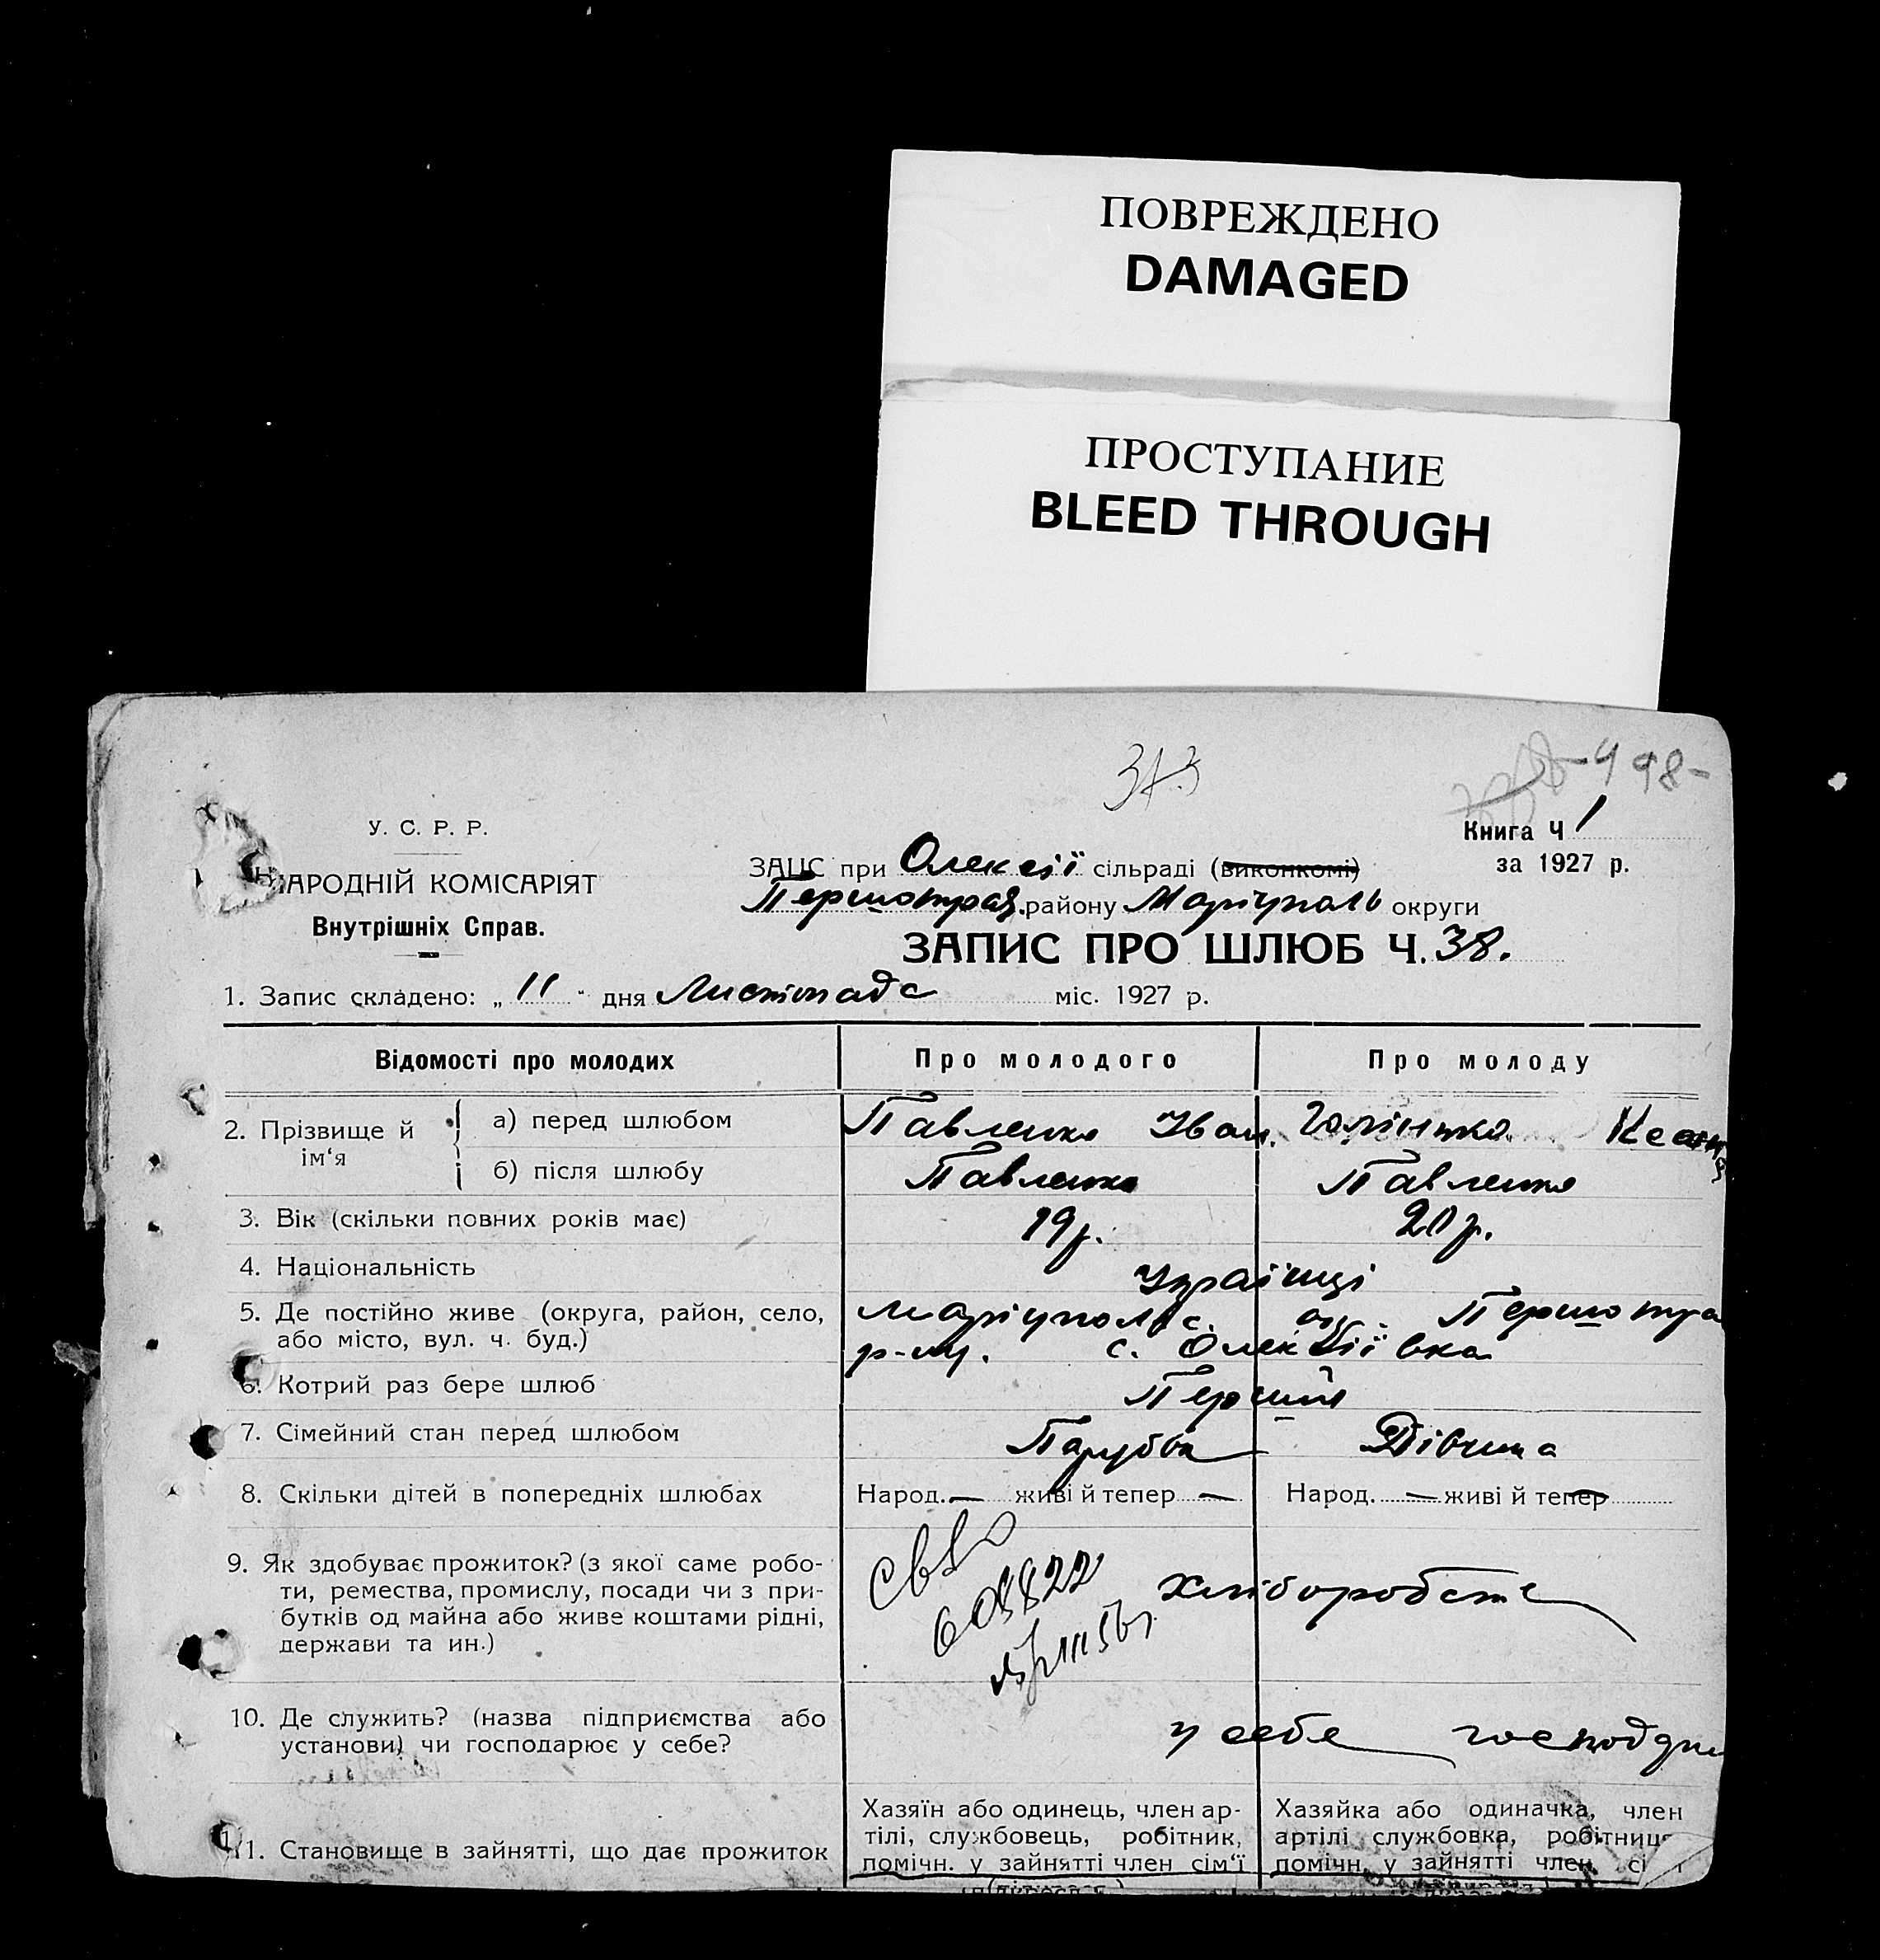 ПОВРЕЖДЕНО
DAMAGED
ПРОСТУПАНИЕ
BLEED THROUGH
498-
У. С. Р. Р.
НАРОДНІЙ КОМІСАРІЯТ
Внутрішніх Справ.
Книга Ч 1
за 1927 р.
ЗАЦС при Олексії сільраді (виконкомі)
Першотрав. району Маріуполь округи
ЗАПИС ПРО ШЛЮБ Ч. 38.
1. Запис складено: „ 11 " дня Листопада міс. 1927 р.
Відомості про молодих
Про молодого
Про молоду
2. Прізвище й ім‘я
а) перед шлюбом Павленко Іван.
б) після шлюбу Павленко Павленко
3. Вік (скільки повних років має) 19 р. 20 р.
4. Національність Українці
5. Де постійно живе (округа, район, село, Маріупольс. ок. Першотра
або місто, вул. ч. буд.) р-ну. с. Олексіївка
6. Котрий раз бере шлюб Перший
7. Сімейний стан перед шлюбом Парубок Дівчина
8. Скільки дітей в попередніх шлюбах Народ. — живі й тепер — Народ. — живі й тепер —
9. Як здобуває прожиток? (з якої саме робо-
ти, ремества, промислу, посади чи з при-
бутків од майна або живе коштами рідні,
держави та ин.)
Хліборобств
10. Де служить? (назва підприємства або
установи) чи господарює у себе?
у себе
11. Становище в зайнятті, що дає прожиток
Хазяїн або одинець, член ар-
тілі, службовець, робітник,
помічн. у зайнятті член сім‘ї
Хазяйка або одиначка, член
артілі службовка, робітниця
помічн. у зайнятті член